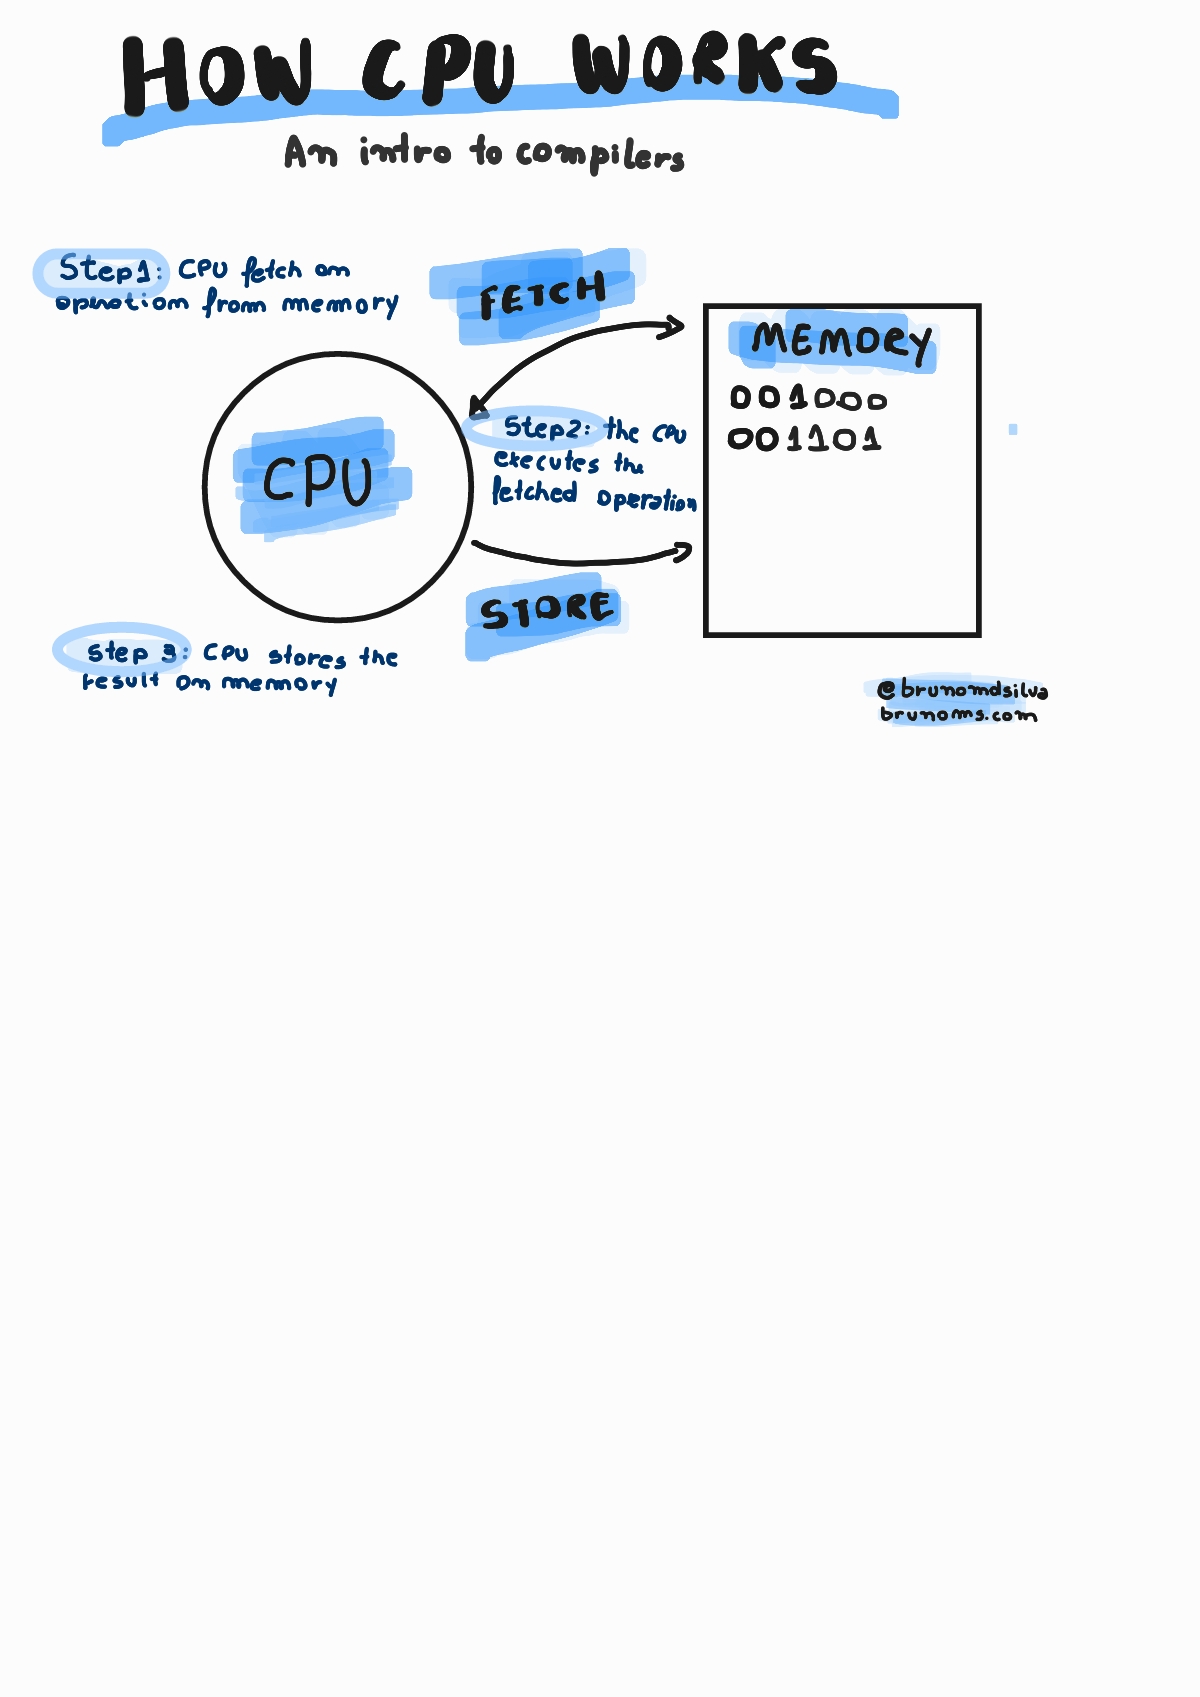 HOW CPU WORKS
An intro to compilers
Step1: CPU fetch an
operation from memory
FETCH
MEMORY
001000
001101
CPU
Step2: the CPU
executes the
fetched operation
STORE
Step 3: CPU stores the
result on memory
@brunomdsilva
brunoms.com